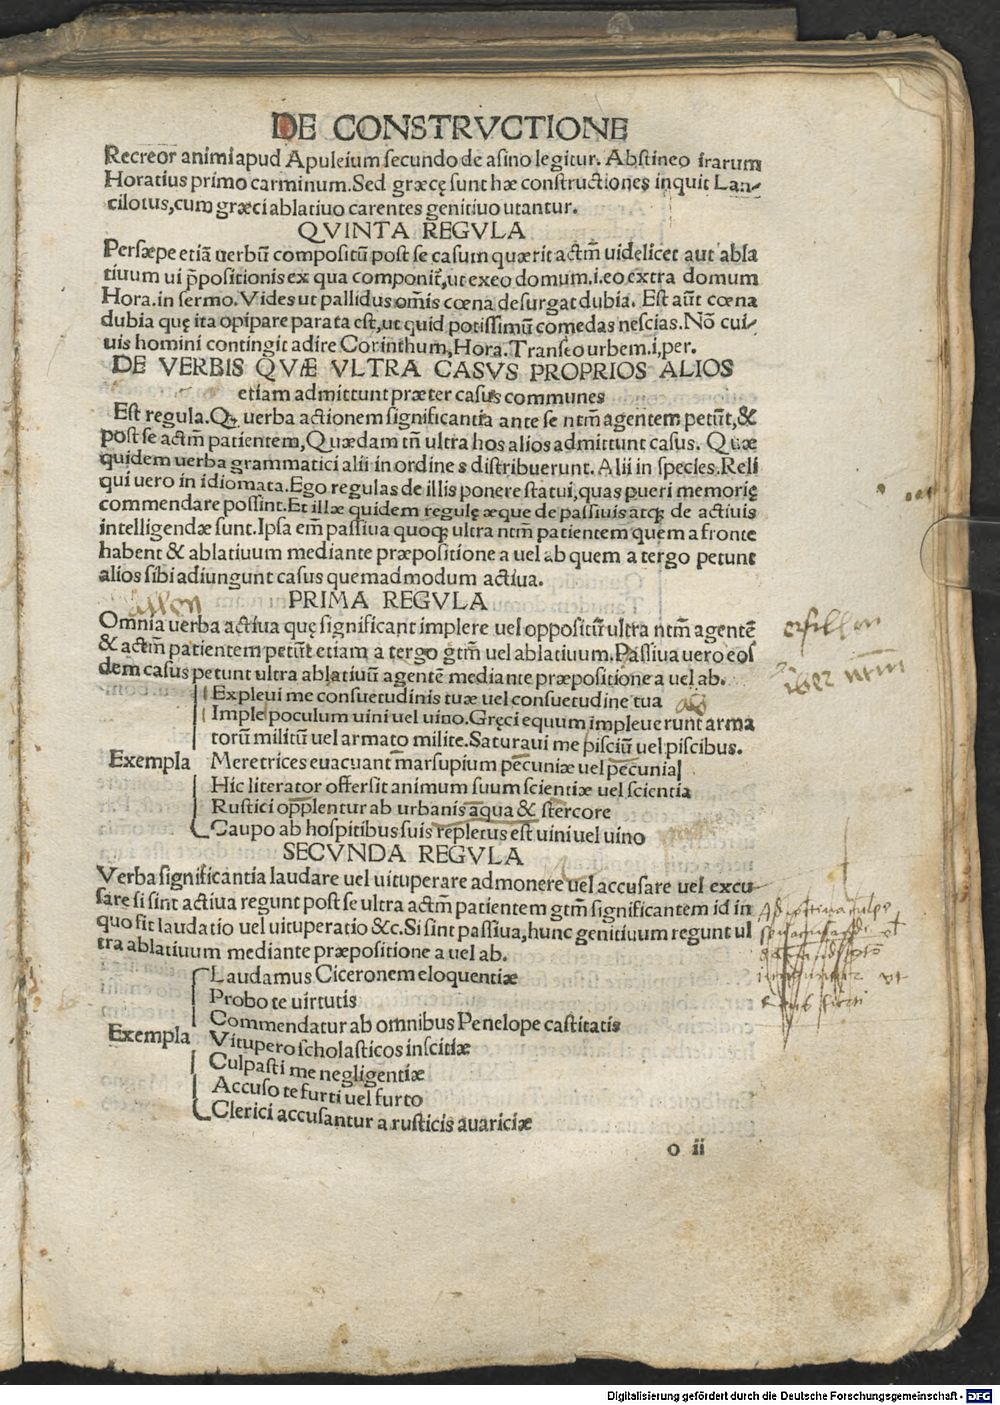 DE CONSTRVCTIONE
Recreor animi apud Apuleium secundo de asino legitur. Abstineo irarum
Horatius primo carminum. Sed græcę sunt hæ constructiones inquit Lan-
cilotus, cum græci ablatiuo carentes genitiuo utantur.
QVINTA REGVLA
Persæpe etiā uerbū compositū post se casum quærit actm̄ uidelicet aut abla
tiuum ui p̄positionis ex qua componit̄, ut exeo domum .i. eo extra domum
Hora. in sermo. Vides ut pallidus om̄is cœna desurgat dubia. Est aūt cœna
dubia quę ita opipare parata est, ut quid potissimū comedas nescias. Nō cui-
uis homini contingit adire Corinthum, Hora. Transeo urbem .i. per.
DE VERBIS QVÆ VLTRA CASVS PROPRIOS ALIOS
etiam admittunt præter casus communes
Est regula. Qꝫ uerba actionem significantia ante se ntm̄ agentem petūt, &
post se actm̄ patientem, Quædam tn̄ ultra hos alios admittunt casus. Quæ
quidem uerba grammatici alii in ordines distribuerunt. Alii in species. Reli
qui uero in idiomata. Ego regulas de illis ponere statui, quas pueri memorię
commendare possint. Et illæ quidem regulę æque de passiuis atqꝫ de actiuis
intelligendæ sunt. Ipsa em̄ passiua quoqꝫ ultra ntm̄ patientem quem a fronte
habent & ablatiuum mediante præpositione a uel ab quem a tergo petunt
alios sibi adiungunt casus quemadmodum actiua.
PRIMA REGVLA
Omnia uerba actiua quę significant implere uel oppositū ultra ntm̄ agentē
& actm̄ patientem petūt etiam a tergo gtm̄ uel ablatiuum. Passiua uero eos
dem casus petunt ultra ablatiuū agentē mediante præpositione a uel ab.
erfillen
iber ntm̄
Expleui me consuetudinis tuæ uel consuetudine tua
Imple poculum uini uel uino. Gręci equum impleuerunt arma
torū militū uel armato milite. Saturaui me pisciū uel piscibus.
Exempla Meretrices euacuant marsupium pecuniæ uel pecunia
Hic literator offersit animum suum scientiæ uel scientia
Rustici opplentur ab urbanis aqua & stercore
Caupo ab hospitibus suis repletus est uini uel uino
SECVNDA REGVLA
Verba significantia laudare uel uituperare admonere uel accusare uel excu
sare si sint actiua regunt post se ultra actm̄ patientem gtm̄ significantem id in
quo fit laudatio uel uituperatio &c. Si sint passiua, hunc genitiuum regunt ul
tra ablatiuum mediante præpositione a uel ab.
Laudamus Ciceronem eloquentiæ
Probo te uirtutis
Commendatur ab omnibus Penelope castitatis
Exempla Vitupero scholasticos inscitiæ
Culpasti me negligentiæ
Accuso te furti uel furto
Clerici accusantur a rusticis auariciæ
o ii
Digitalisierung gefördert durch die Deutsche Forschungsgemeinschaft - DFG